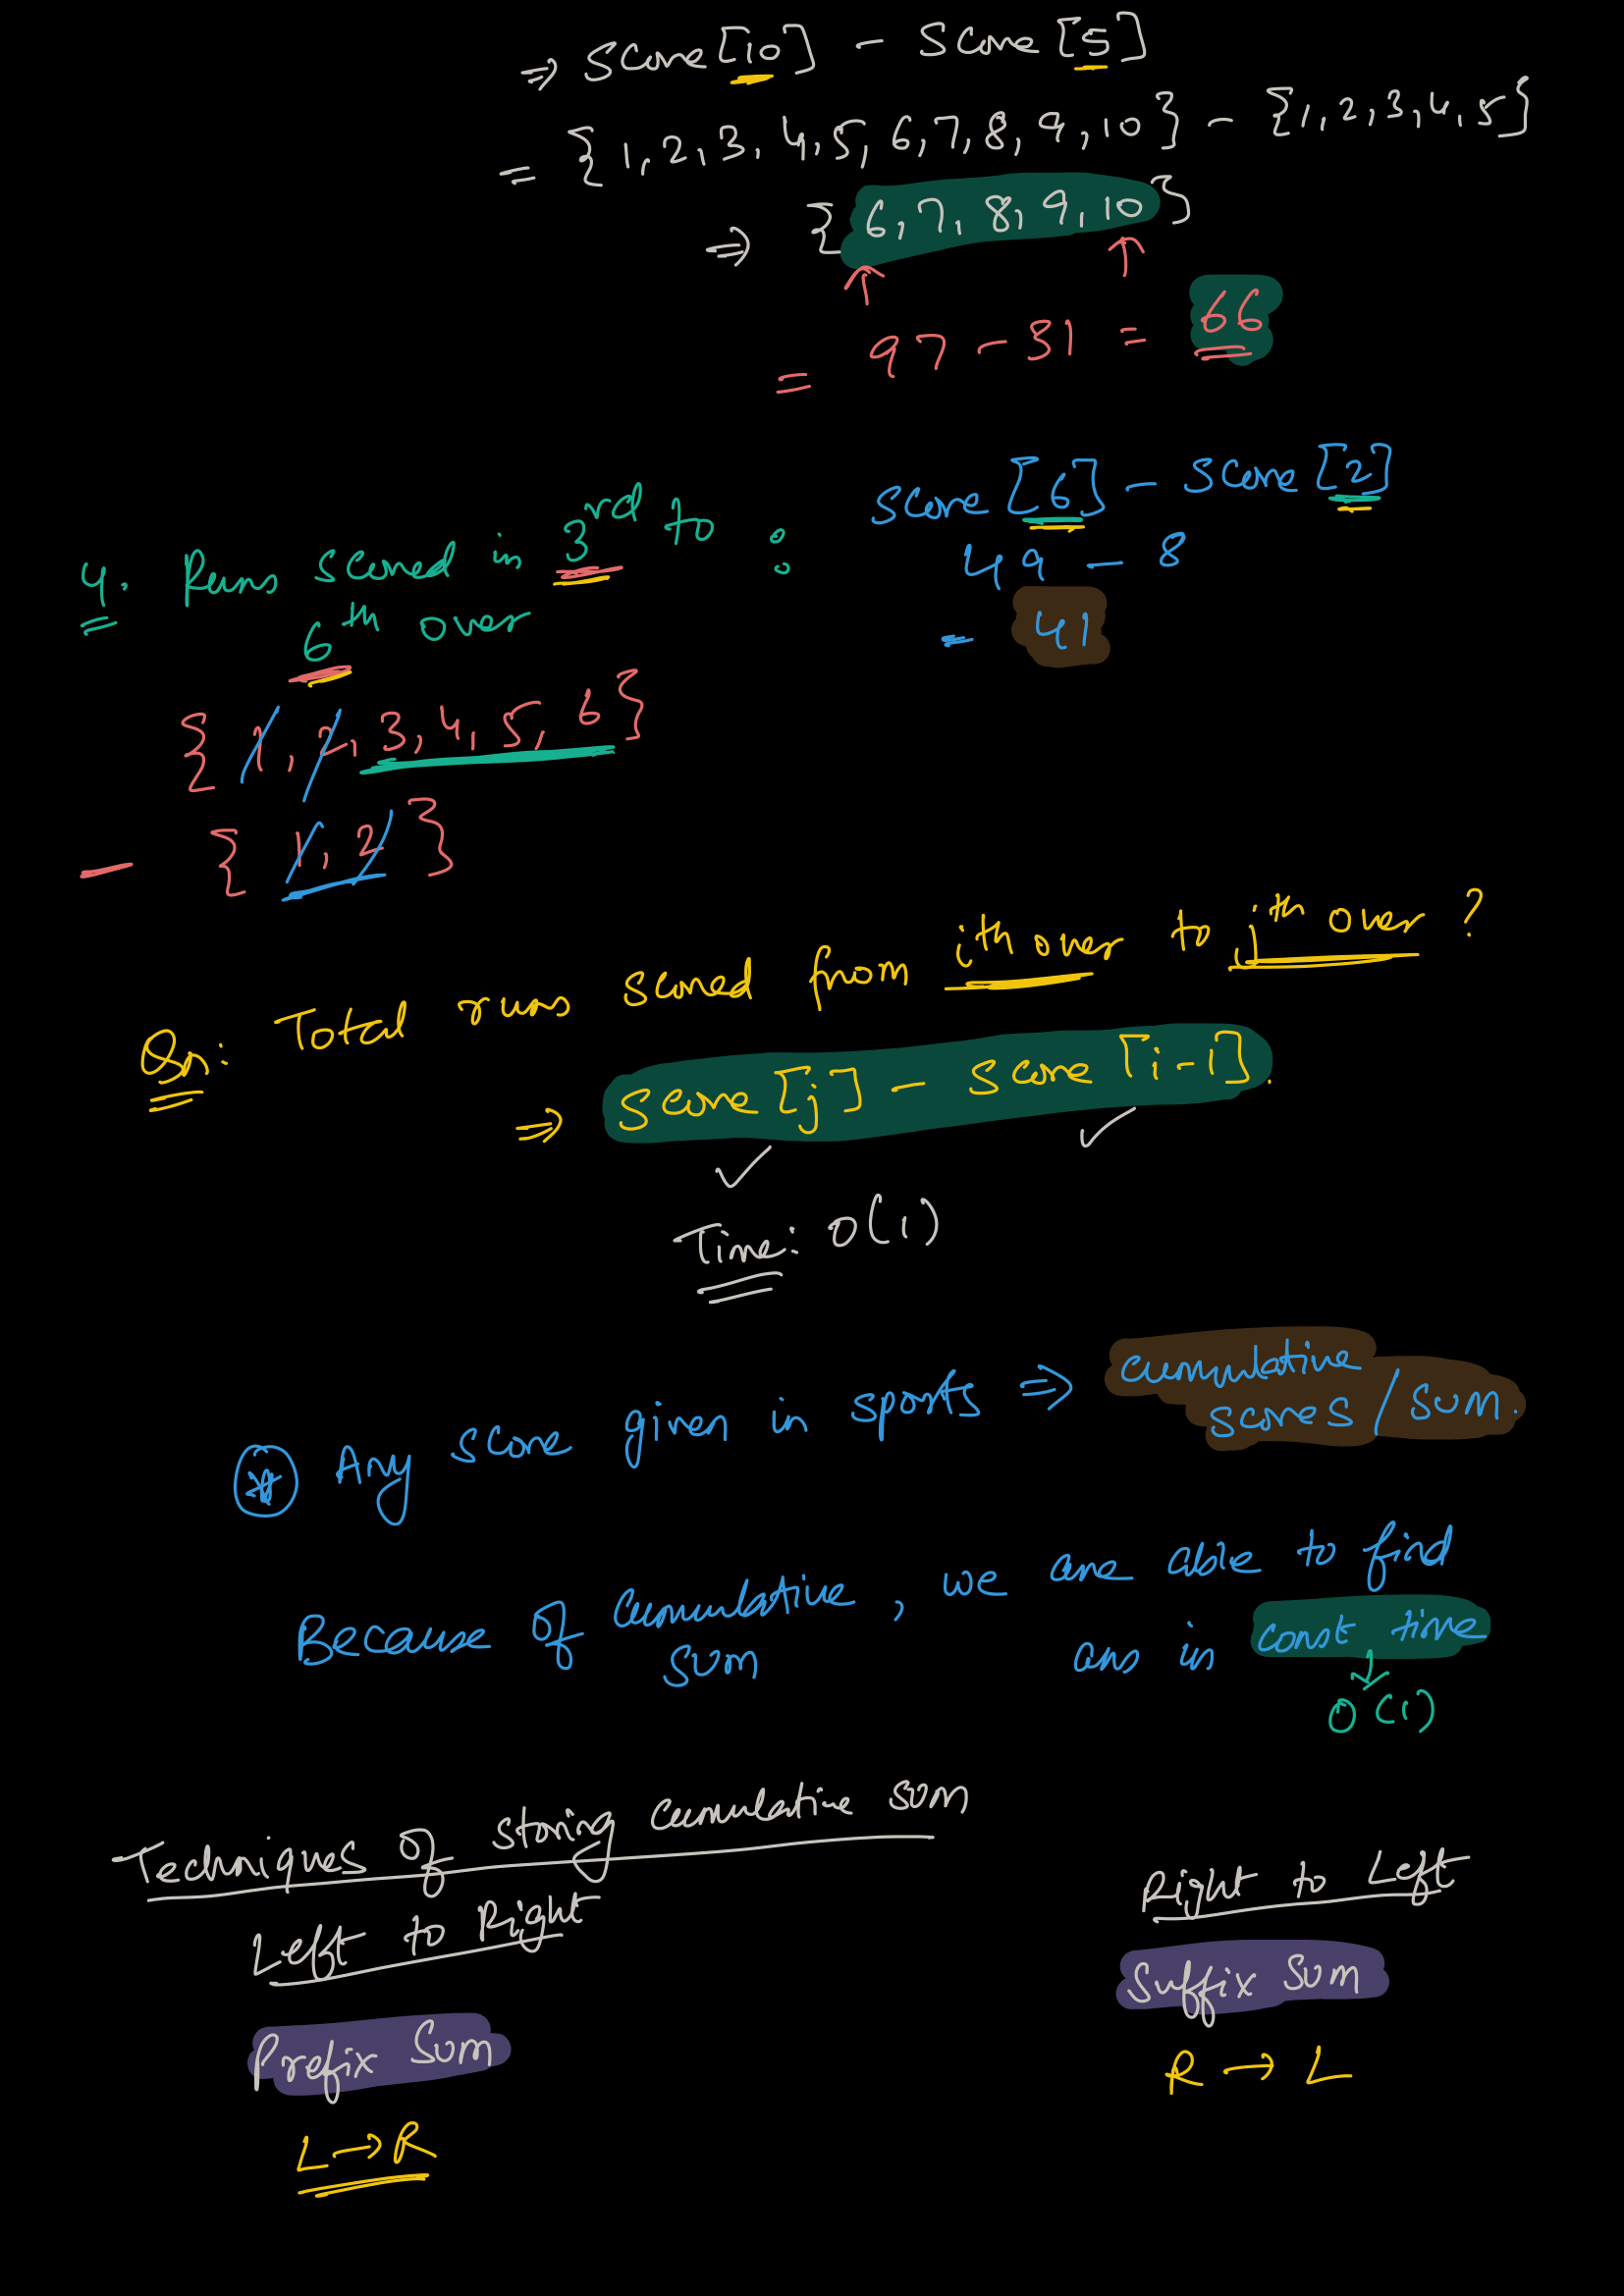 ⇒ Score [10] - Score [5]
= {1, 2, 3, 4, 5, 6, 7, 8, 9, 10} - {1, 2, 3, 4, 5}
⇒ {6, 7, 8, 9, 10}
= 97 - 31 = 66
4. Runs scored in 3rd to :
6th over
score [6] - score [2]
49 - 8
= 41
{1, 2, 3, 4, 5, 6}
- {1, 2}
Qn: Total runs scored from ith over to jth over ?
⇒ score [j] - score [i-1].
Time: O(1)
* Any score given in sports ⇒ cumulative
scores / sum.
Because of cumulative sum, we are able to find
ans in const time
O(1)
Techniques of storing cumulative sum
Left to Right
Prefix Sum
L → R
Right to Left
Suffix Sum
R → L